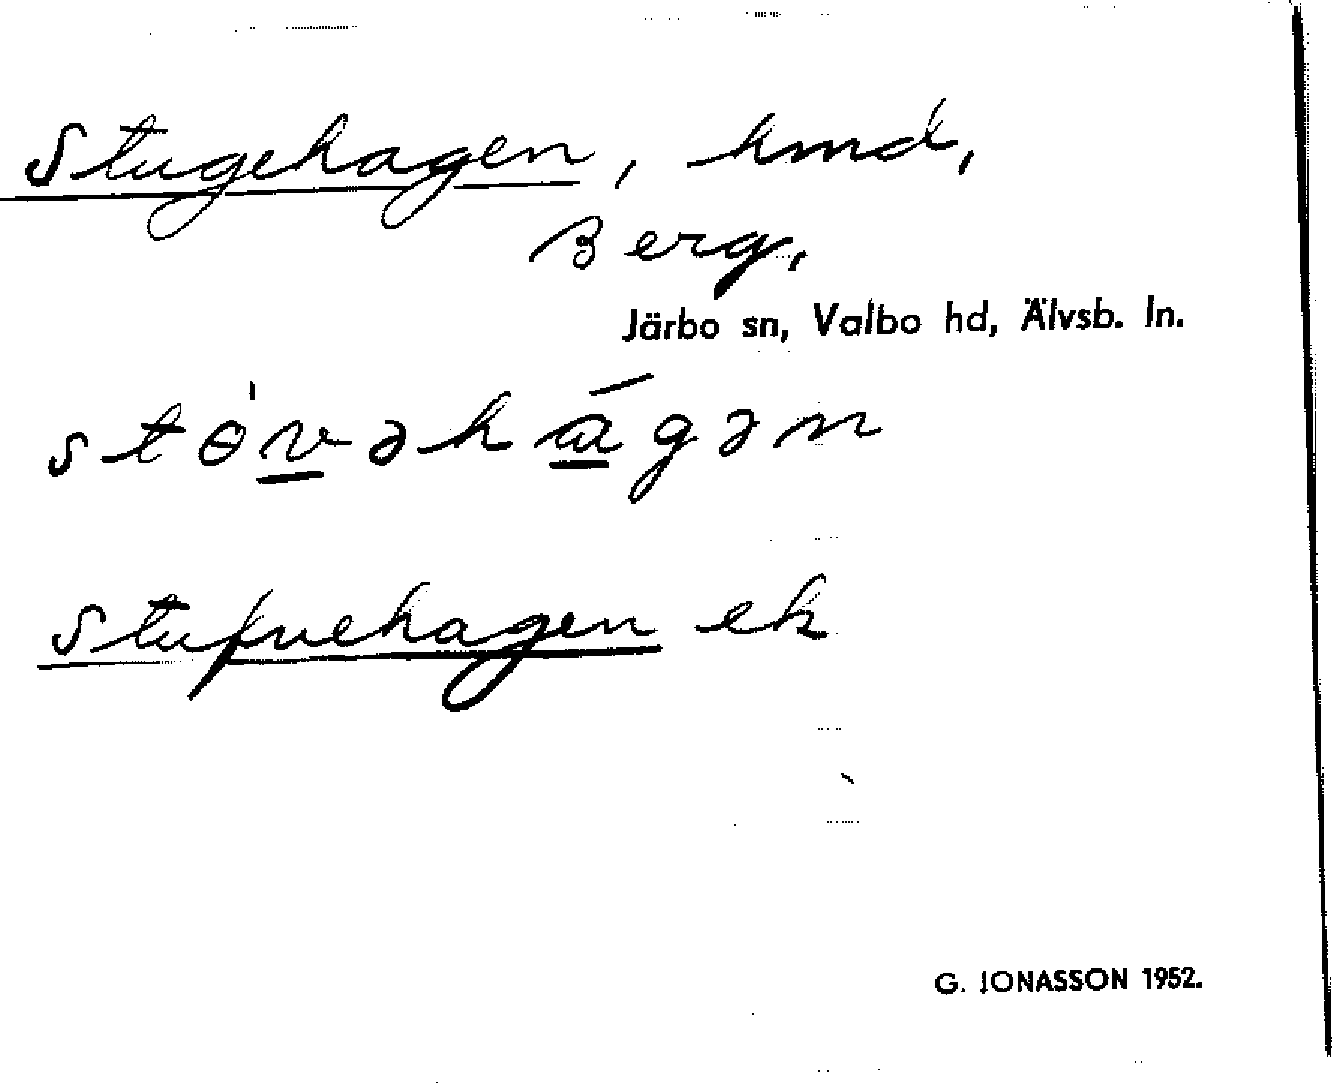 Stugehagen, hmd,
Berg,
Järbo sn, Valbo hd, Älvsb. ln.
stɵ̍vəhágən
Stufvehagen ek
G. JONASSON 1952.